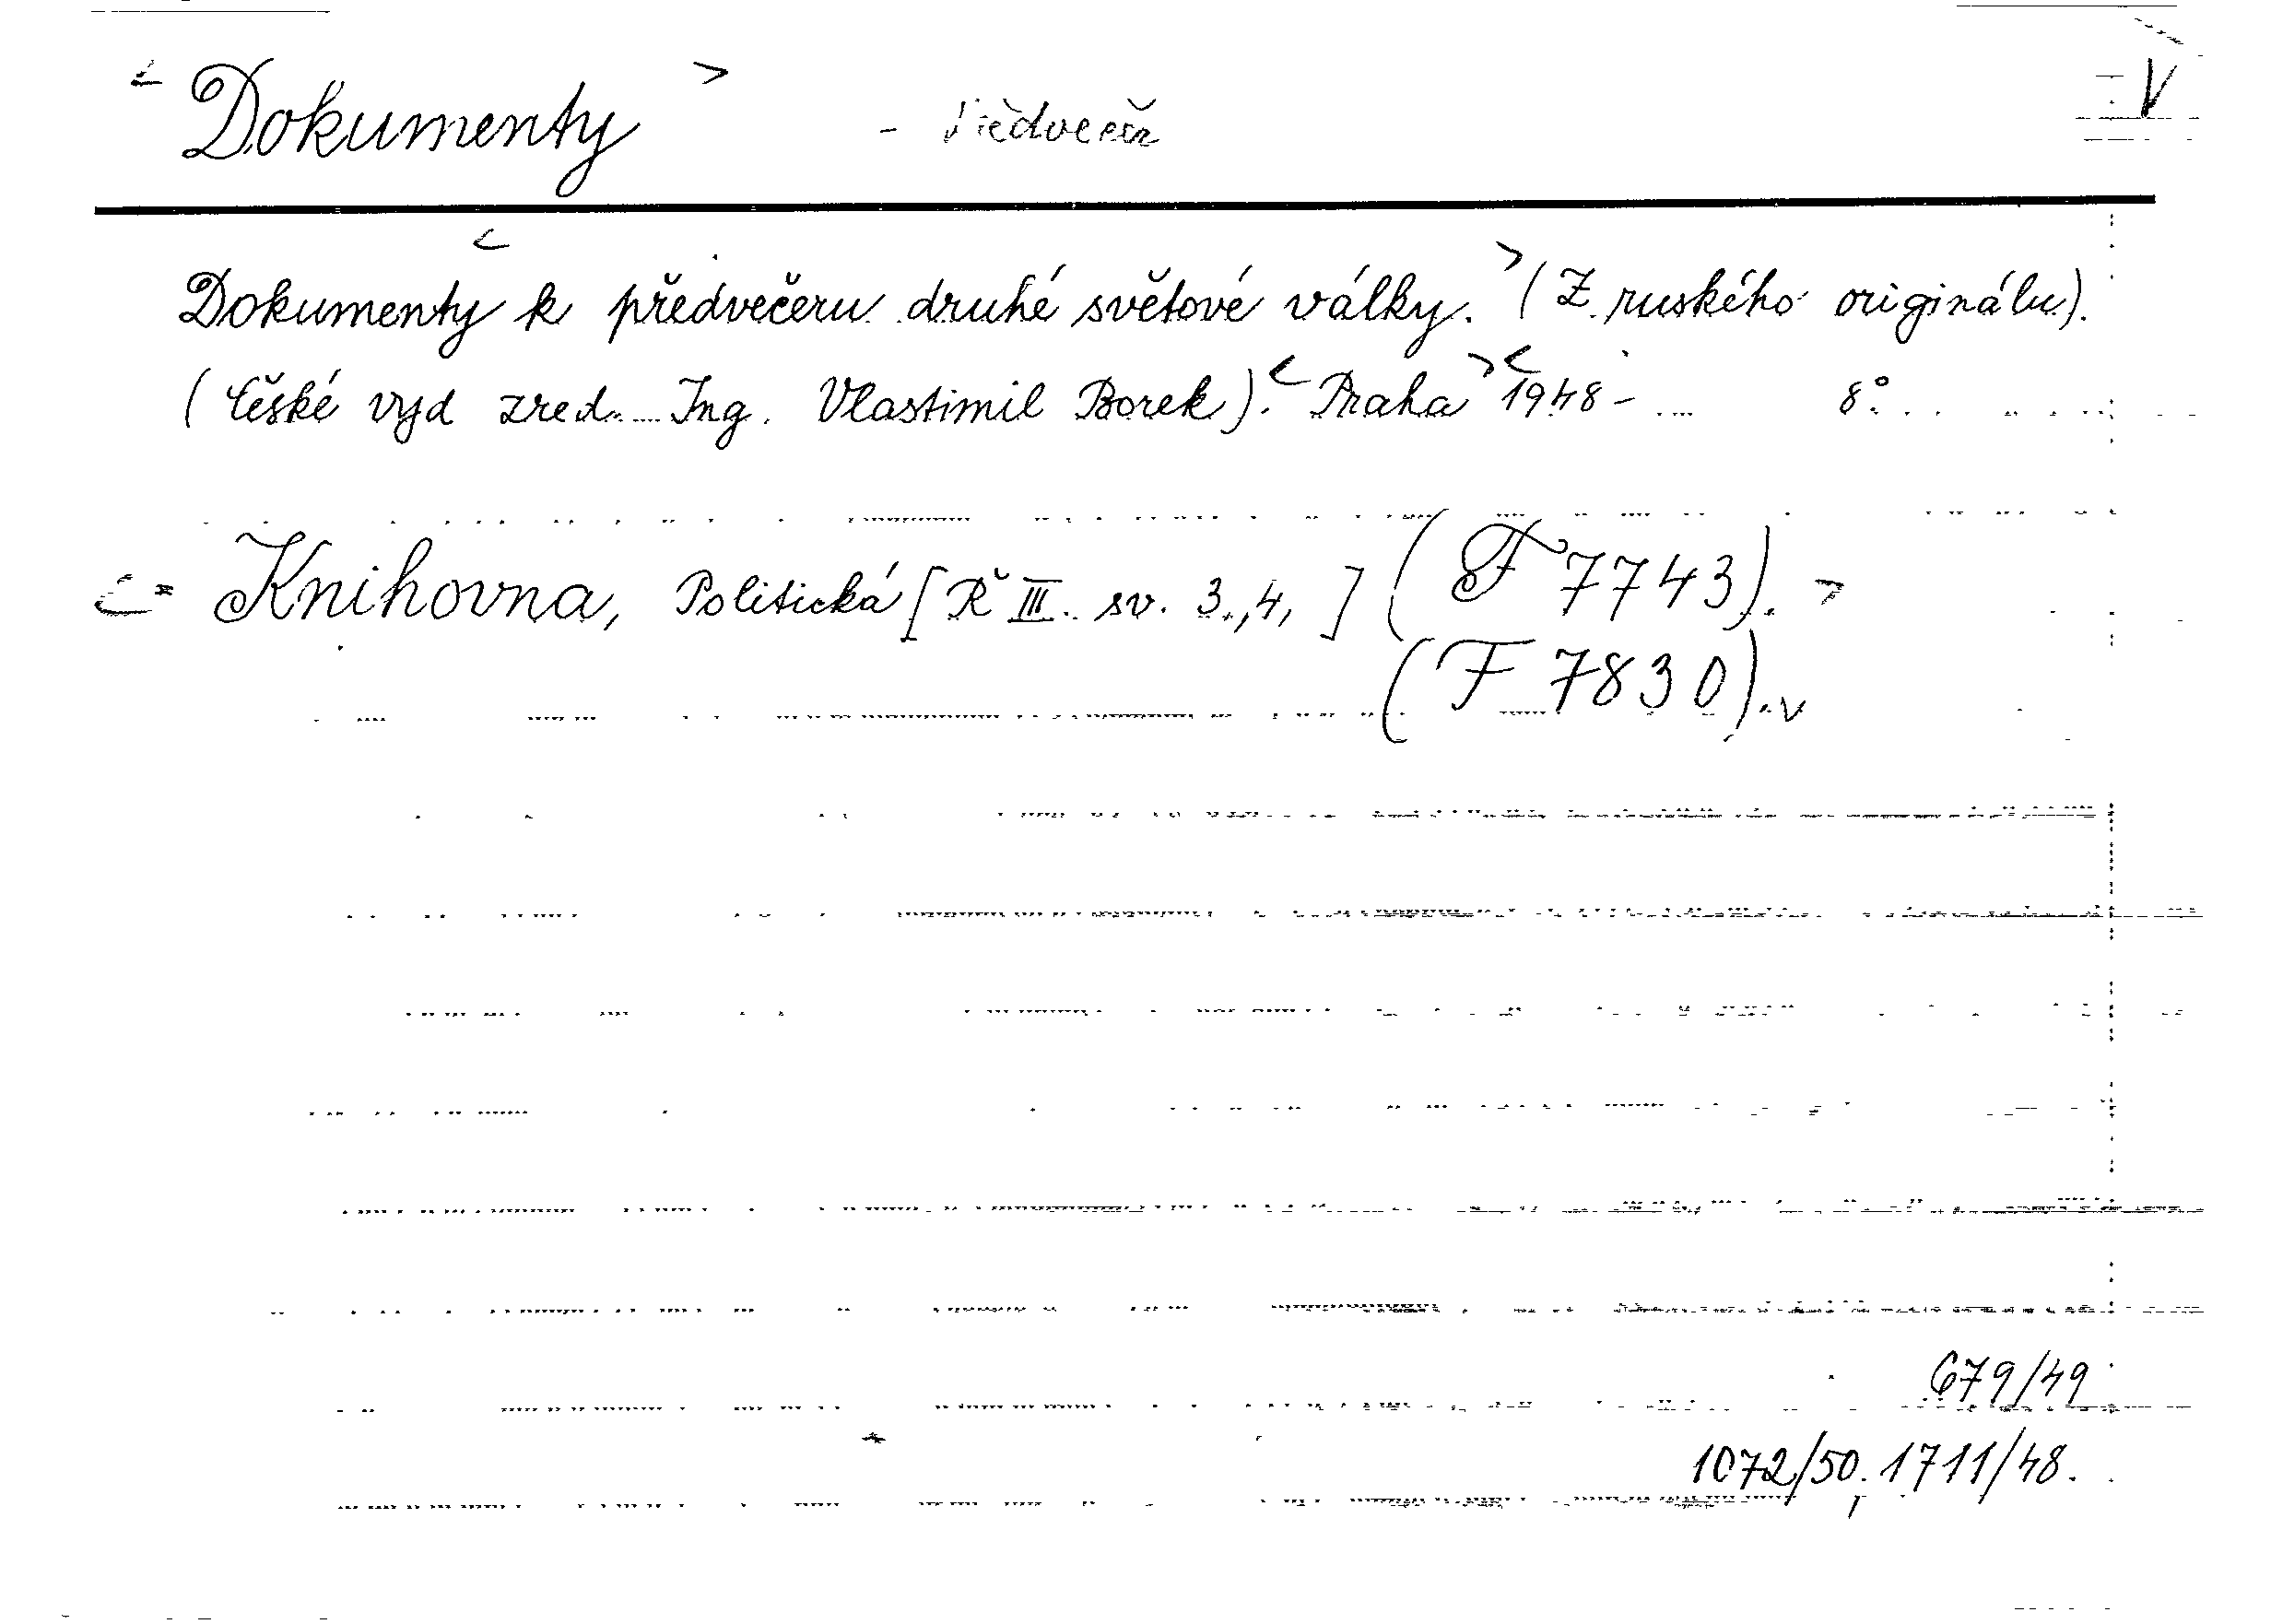 < Dokumenty > - Předvečer V
Dokumenty < k předvečeru druhé světové války. > (Z ruského originálu).
(České vyd zred. Ing. Vlastimil Borek). < Praha > < 1948 - 8°.
< = Knihovna, Politická [Ř III. sv. 3., 4, ] (F 7743). >
(F 7830). v
679/49
1072/50, 1711/48.